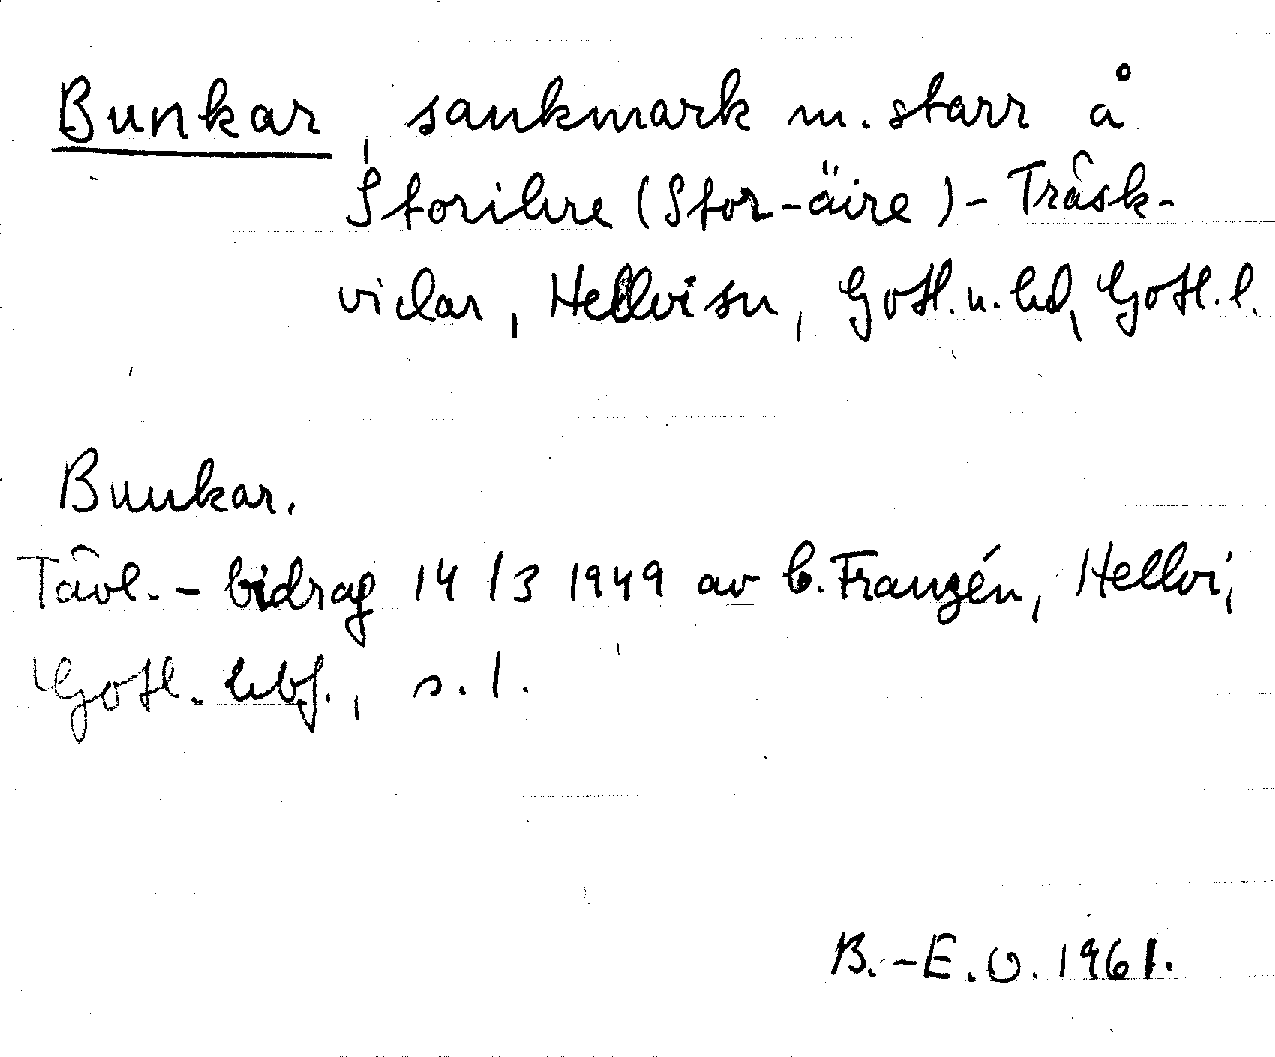 Bunkar, sankmark m. starr å
Storihre (Stor-äire) - Träsk-
vidar, Hellvi sn, Gotl. n. hd, Gotl. l.
Bunkar.
Tävl. - bidrag 14/3 1949 av C. Franzén, Hellvi,
Gotl. hbf., s. 1.
B.-E. O. 1961.